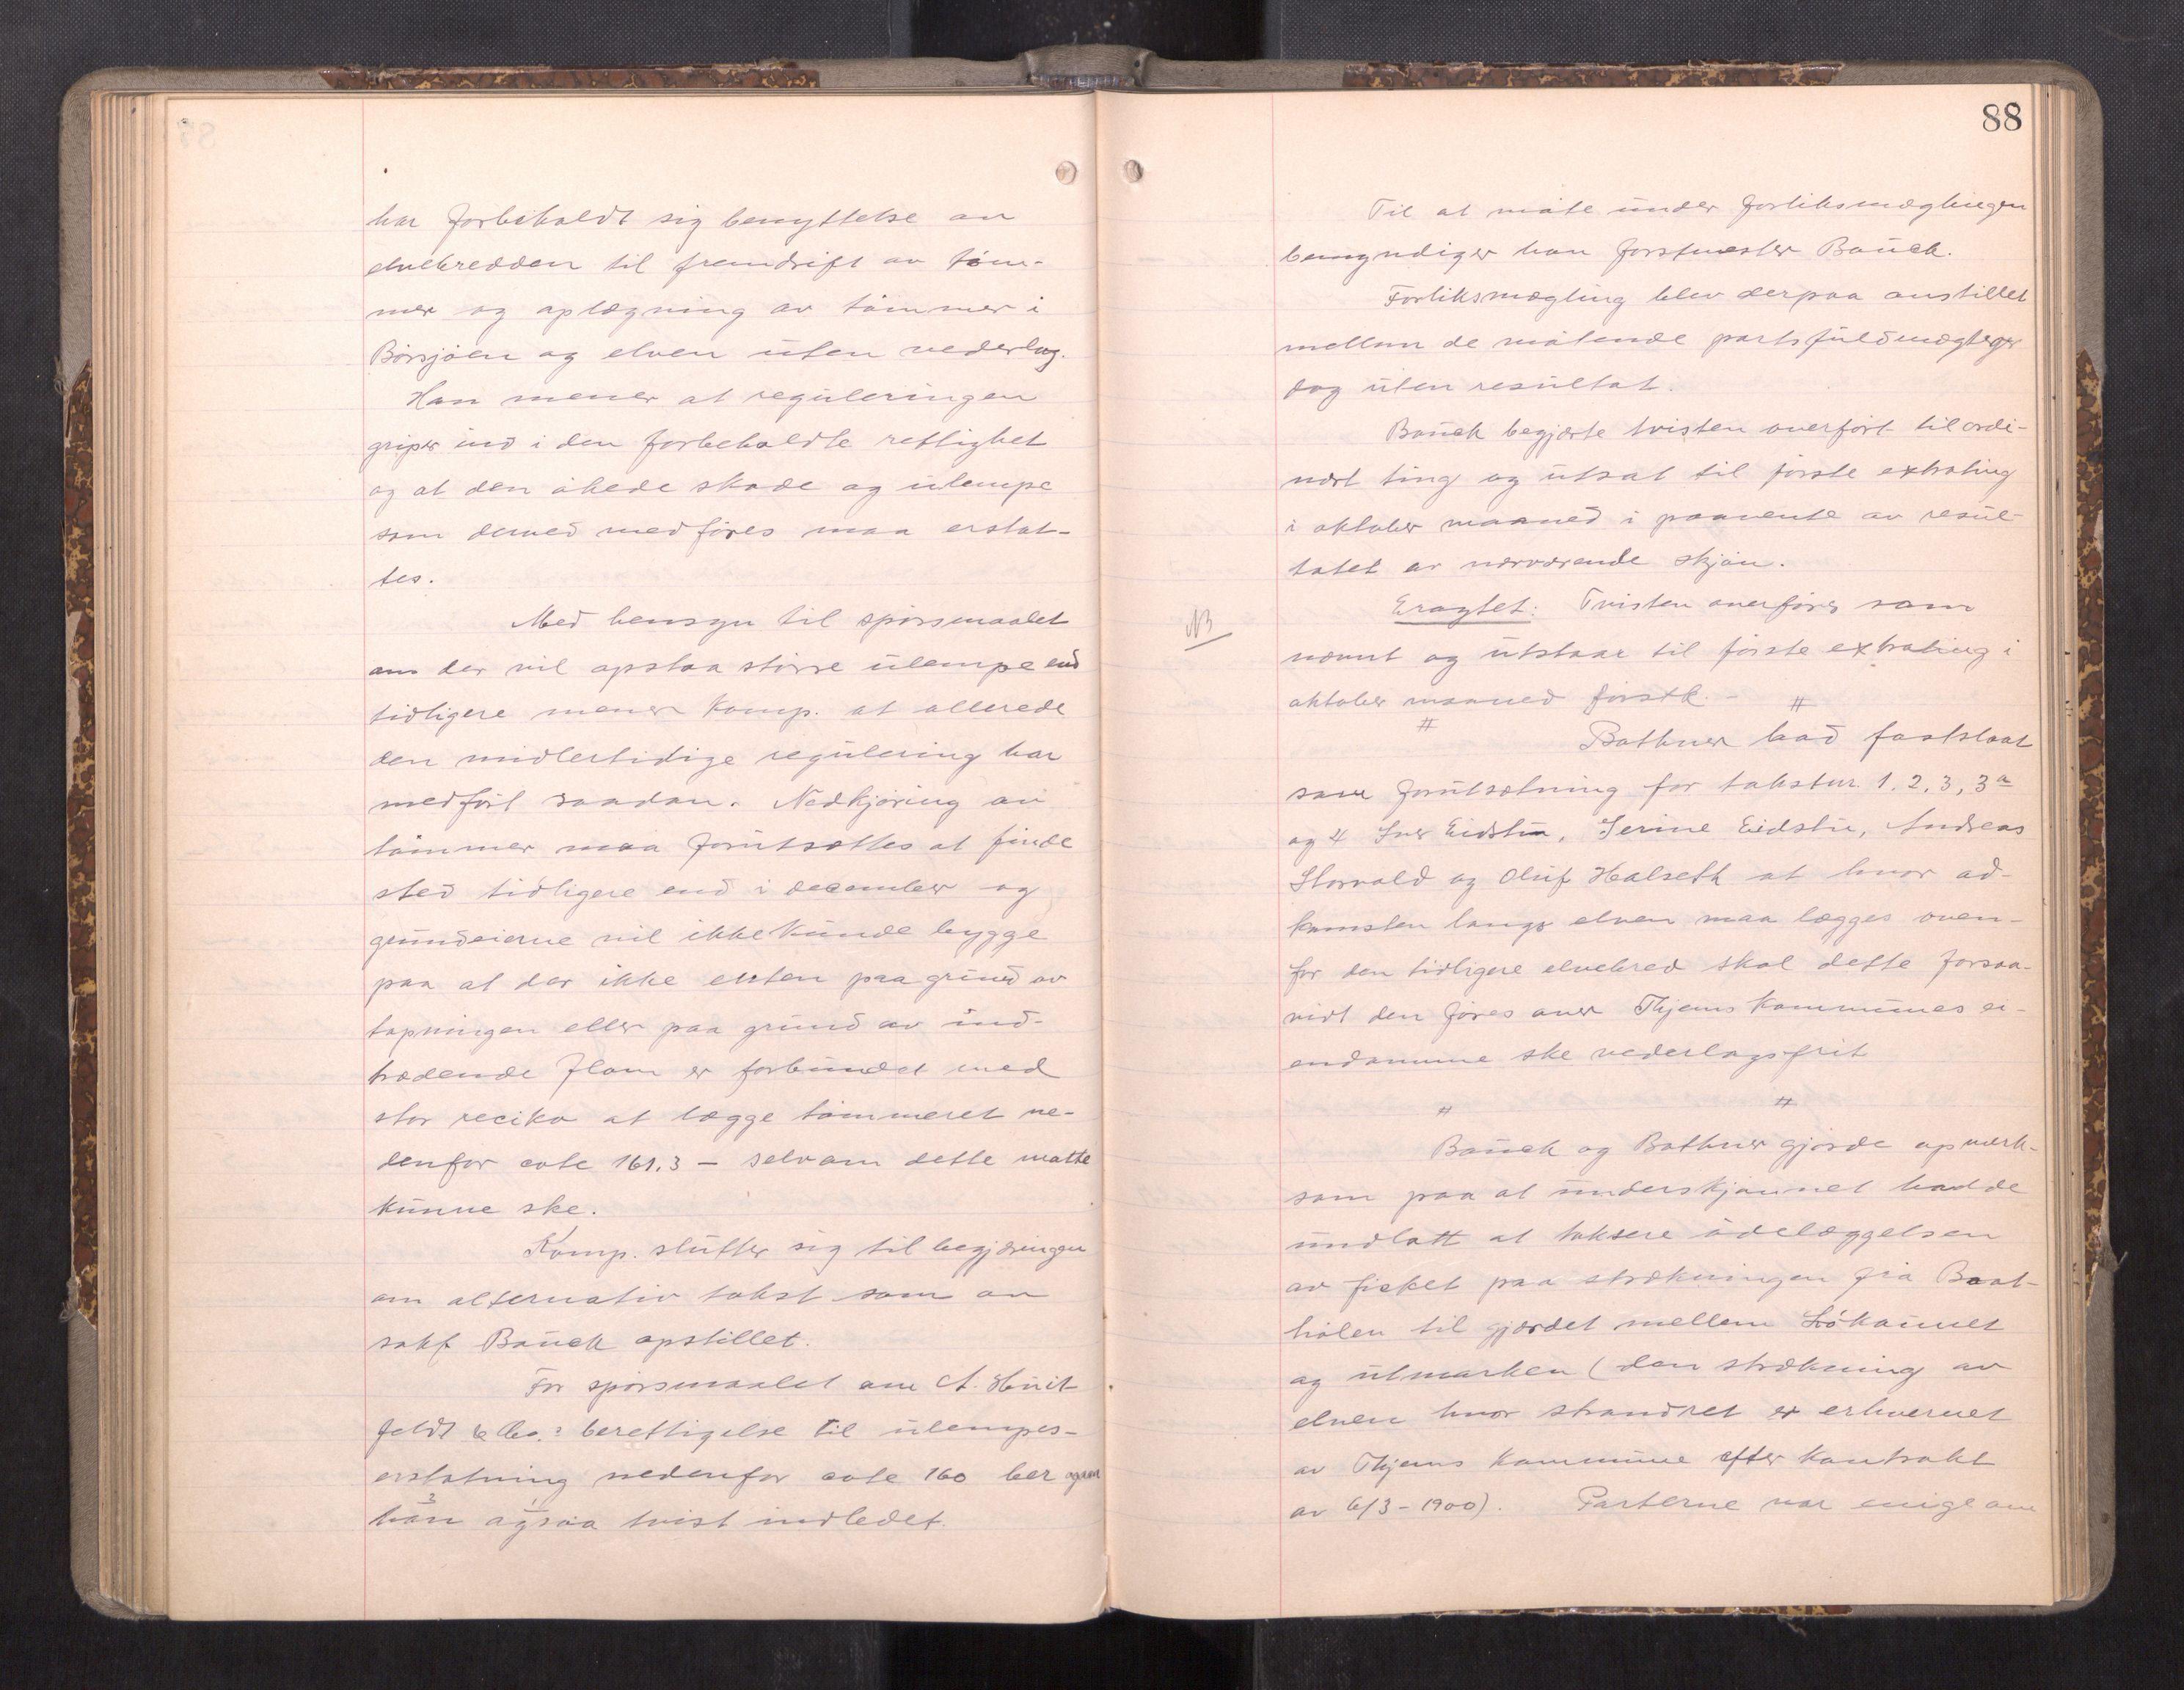 har forbeholdt sig benyttelse av
elvebredden til fremdrift av töm-
mer og oplægning av tömmer i
Börsjöen og elven uten vederlag.
Han mener at reguleringen
griper ind i den forbeholdte rettighet
og at den ökede skade og ulempe
som derved medföres maa erstat-
tes.
Med hensyn til spörsmaalet
om der vil opstaa större ulempe end
tidligere mener Komp. at allerede
den midlertidige regulering har
medfört saadan. Nedkjöring av
tömmer maa forutsættes at finde
sted tidligere end i december og
grundeierne vil ikke kunde bygge
paa at der ikke enten paa grund av
tapningen eller paa grund av ind-
trædende flom er forbundet med
stor reciko at lægge tömmeret ne-
denfor cote 161.3 – selvom dette maatte
kunne ske.
Komp. slutter sig til begjæringen
om alternativ takst som av
sakf Bauck opstillet.
For spörsmaalet om A. Huit-
feldt & Co.s berettigelse til ulempes-
erstatning nedenfor cote 160 ber
han ogsaa tvist indledet.
88
Til at möte under forliksmæglingen
bemyndiger han forstmester Bauck.
Forliksmægling blev derpaa anstillet
mellem de mötende partsfuldmægtiger
dog uten resultat.
Bauck begjærte tvisten overfört til ordi-
nært ting og utsat til förste extrating
i oktober maaned i paavente av resul-
tatet av nærværende skjön.
NB
Eragtet: Tvisten overföres som
nævnt og utstaar til förste extrating i
oktober maaned förstk. –
# #
Bothner bad fastslaat
som forutsætning for takstnr. 1, 2, 3, 3a
og 4 Iver Eidstu, Serine Eidstu, Andreas
Storvold og Oluf Halseth at hvor ad-
komsten langs elven maa lægges oven-
for den tidligere elvebred skal dette forsaa-
vidt den föres over Thjems Kommunes ei-
endomme ske vederlagsfrit
# #
Bauck og Bothner gjorde opmerk-
som paa at underskjönnet hadde
undlatt at taksere ödelæggelsen
av fisket paa strækningen fra Baat-
hölen til gjærdet mellem
og utmarken (den strækning av
elven hvor strandret er erhvervet
av Thjems Kommune efter kontrakt
av 6/3 – 1900). Parterne var enige om